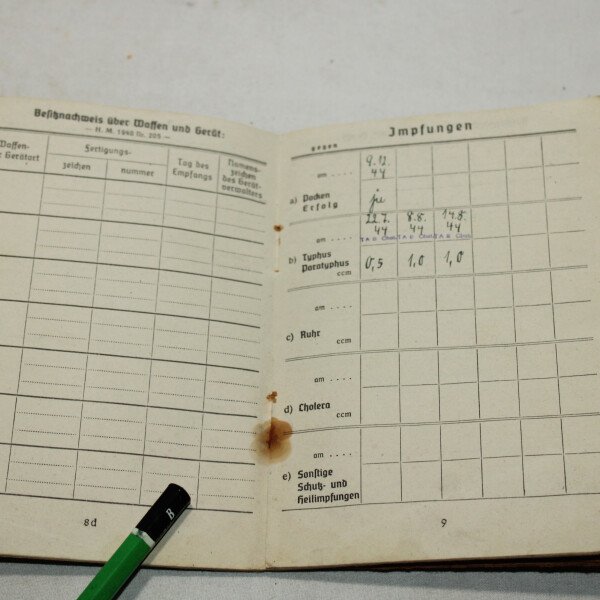 Besitznachweis über Waffen und Gerät:
— H. M. 1940 Nr. 205 —
Waffen-
Gerätart
Fertigungs-
zeichen
nummer
Tag des
Empfangs
Namens-
zeichen
des Gerät-
verwalters
8d
Impfungen
gegen
am . . . .
9.12.
44
a) Pocken
Erfolg
ja
am . . . .
22.7.
44
8.8.
44
14.8.
44
b) Typhus
Paratyphus
ccm
0,5
1,0
1,0
am . . . .
c) Ruhr
ccm
am . . . .
d) Cholera
ccm
am . . . .
e) Sonstige
Schutz- und
Heilimpfungen
9
B